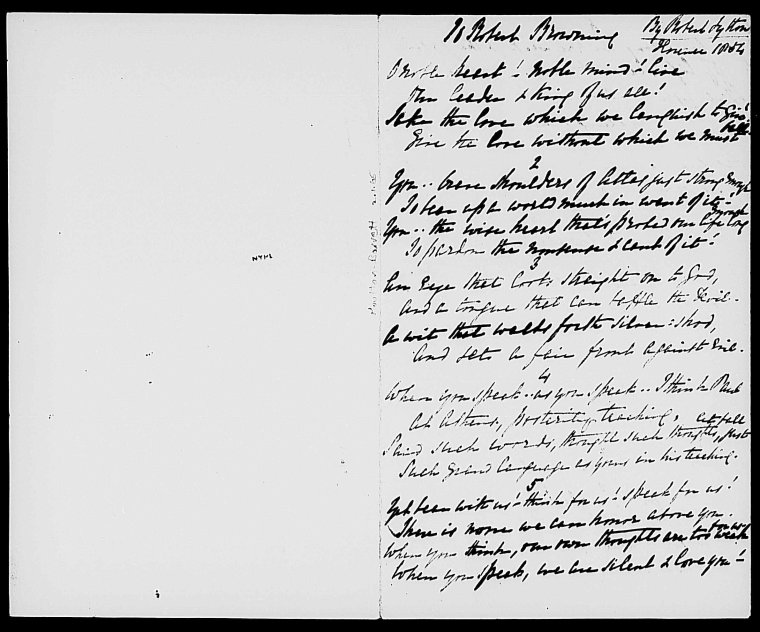 To Robert Browning
By Robert Lytton
Florence 1854
O noble heart! noble mind! live
The leader & King of us all!
Take the love which we languish to give!
Give the love without which we must fall
2
You .. brave shoulders of Atlas just strong enough
To bear up a world much in want of it!
You .. the wise heart that's probed our life long enough
To pardon the nonsense & cant of it!
3
An Eye that looks straight on to God,
And a tongue that can baffle the Devil.
A wit that walks forth silver-shod,
And sets a fair front against Evil.
4
When you speak .. as you speak .. I think Paul
At Athens, posterity teaching,
Said such words, thought such thoughts, let fall just
Such grand language as yours in his teaching.
5
Yet bear with us! think for us! speak for us!
There is none we can honor above you.
When you think, our own thoughts are too weak for us
When you speak, we are silent & love you!
NYPL